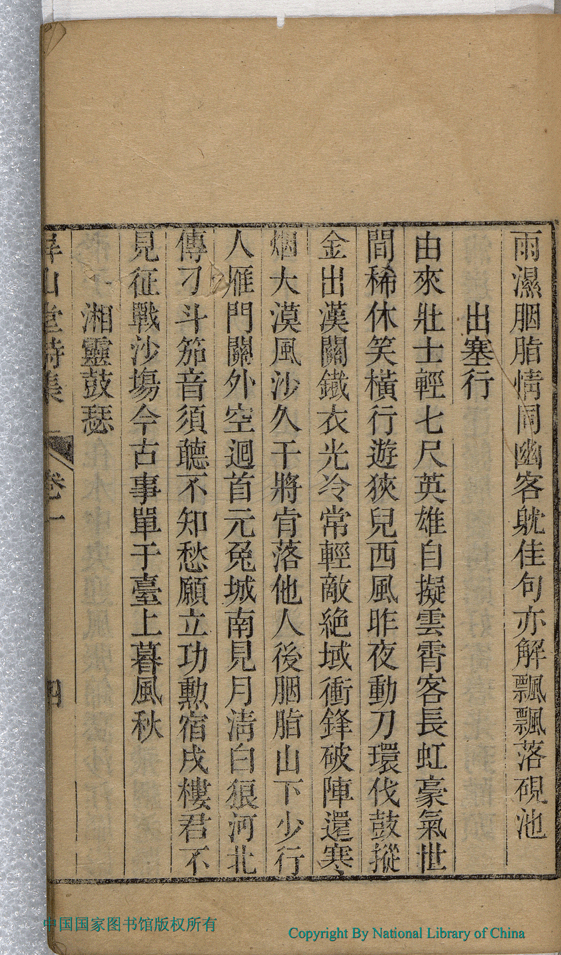 雨濕胭脂情同幽客躭佳句亦解飄飄落硯池
出塞行
由來壯士輕七尺英雄自擬雲霄客長虹豪氣世
間稀休笑橫行遊狹兒西風昨夜動刀環伐鼓摐
金出漢關鐵衣光冷常輕敵絕域衝鋒破陣還寒
烟大漠風沙久干將肯落他人後胭脂山下少行
人雁門關外空迴首元兔城南見月淸白狼河北
傳刁斗笳音須聽不知愁願立功勲宿戍樓君不
見征戰沙塲今古事單于臺上暮風秋
湘靈鼓瑟
屏山堂詩集 卷一 四
中国国家图书馆版权所有
Copyright By National Library of China